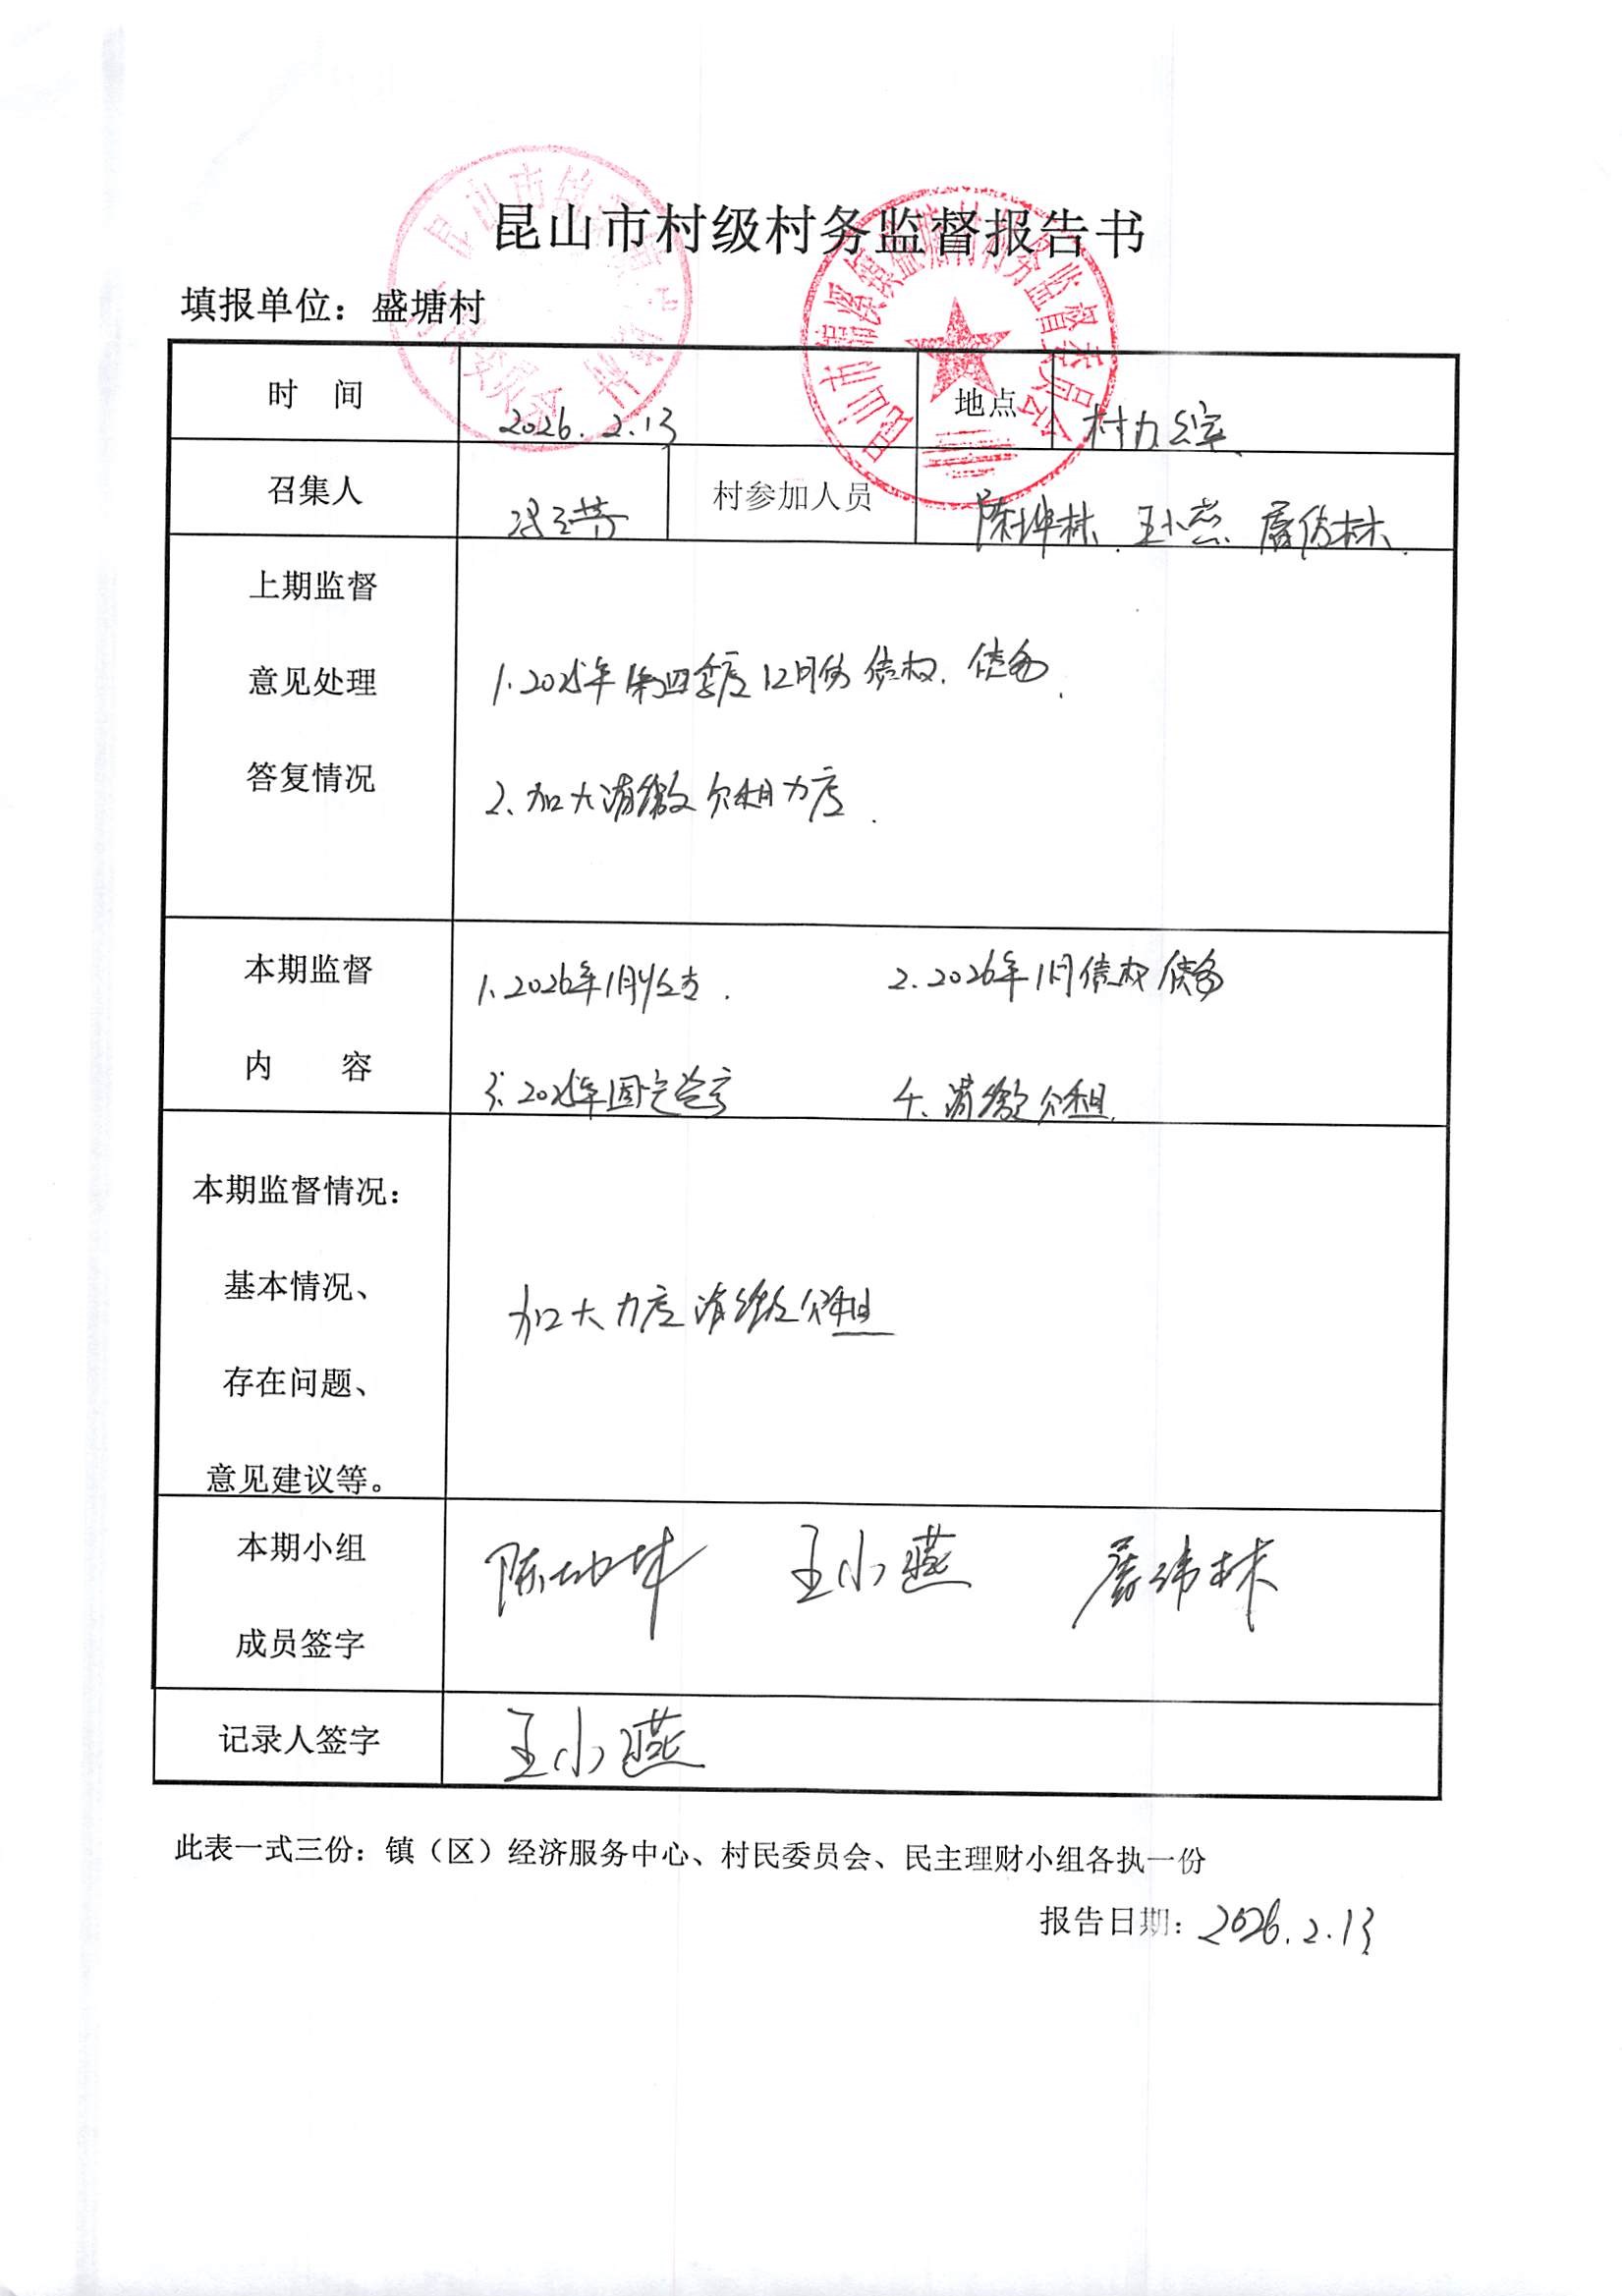 昆山市村级村务监督报告书
填报单位：盛塘村
时 间 2026.2.13 地点 村办公室
召集人 村参加人员 陈坤林、王小燕、
上期监督
意见处理
答复情况
1.2025年第四季度12月份债权、债务.
2、加大清缴欠租力度.
本期监督
内 容
1、2026年1月收支. 2.2026年1月债权债务
3、2025年固定资产 4、清缴欠租.
本期监督情况：
基本情况、
存在问题、
意见建议等。
加大力度清缴欠租
本期小组
成员签字
王小燕
记录人签字 王小燕
此表一式三份：镇（区）经济服务中心、村民委员会、民主理财小组各执一份
报告日期：2026.2.13
昆山市锦溪镇盛塘村村务监督委员会